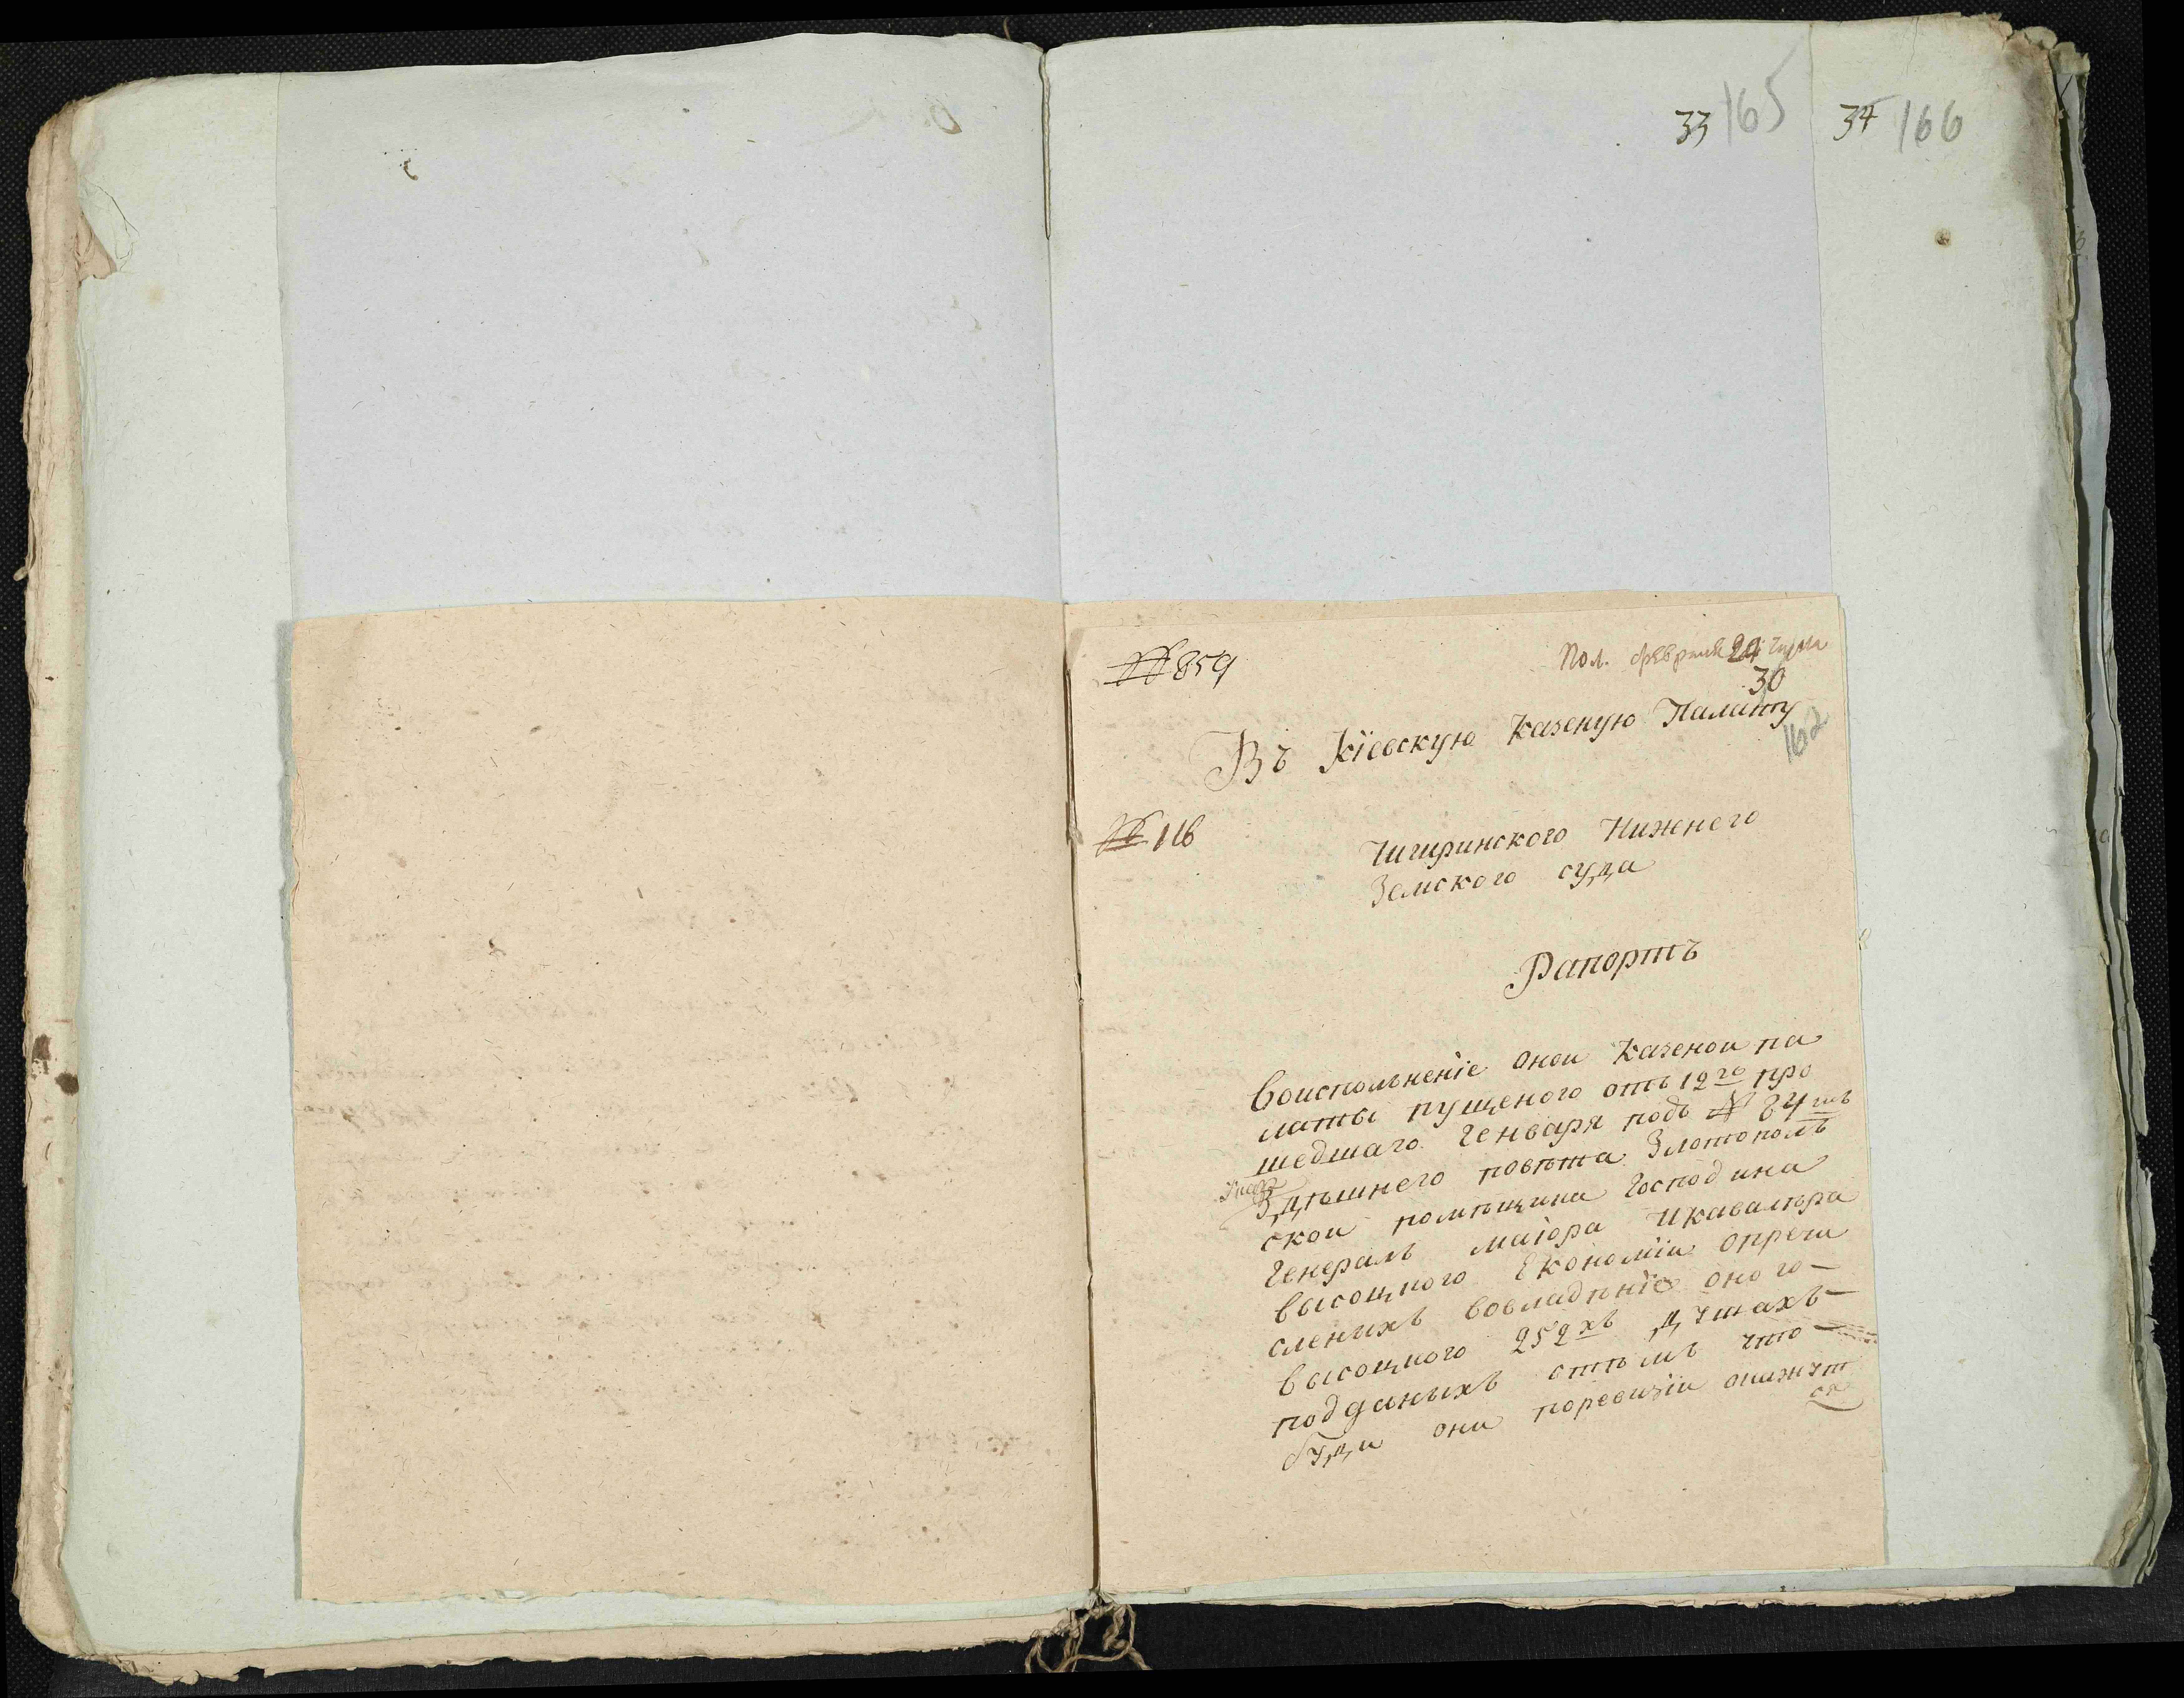 33 165 34 166
№ 859
Пол. февраля 24
30
Въ Кїевскую Казеную Палату
162
№ 116
Чигиринского Нижнего
Земского суда
Рапортъ
Воисполненїе оной Казеной па
латы пущеного отъ 12го про
шедшаго Генваря подъ № 84мъ
Указа
Здѣшнего повѣта Златополь
ской помѣщика Господина
Генералъ маїора Икавалѣра
Высоцкого Економїи опречи
сленыхъ вовладѣнїе оного
Высоцкого 252хъ душахъ
подданыхъ стѣмъ что
буди они поревизїи окажут
ся